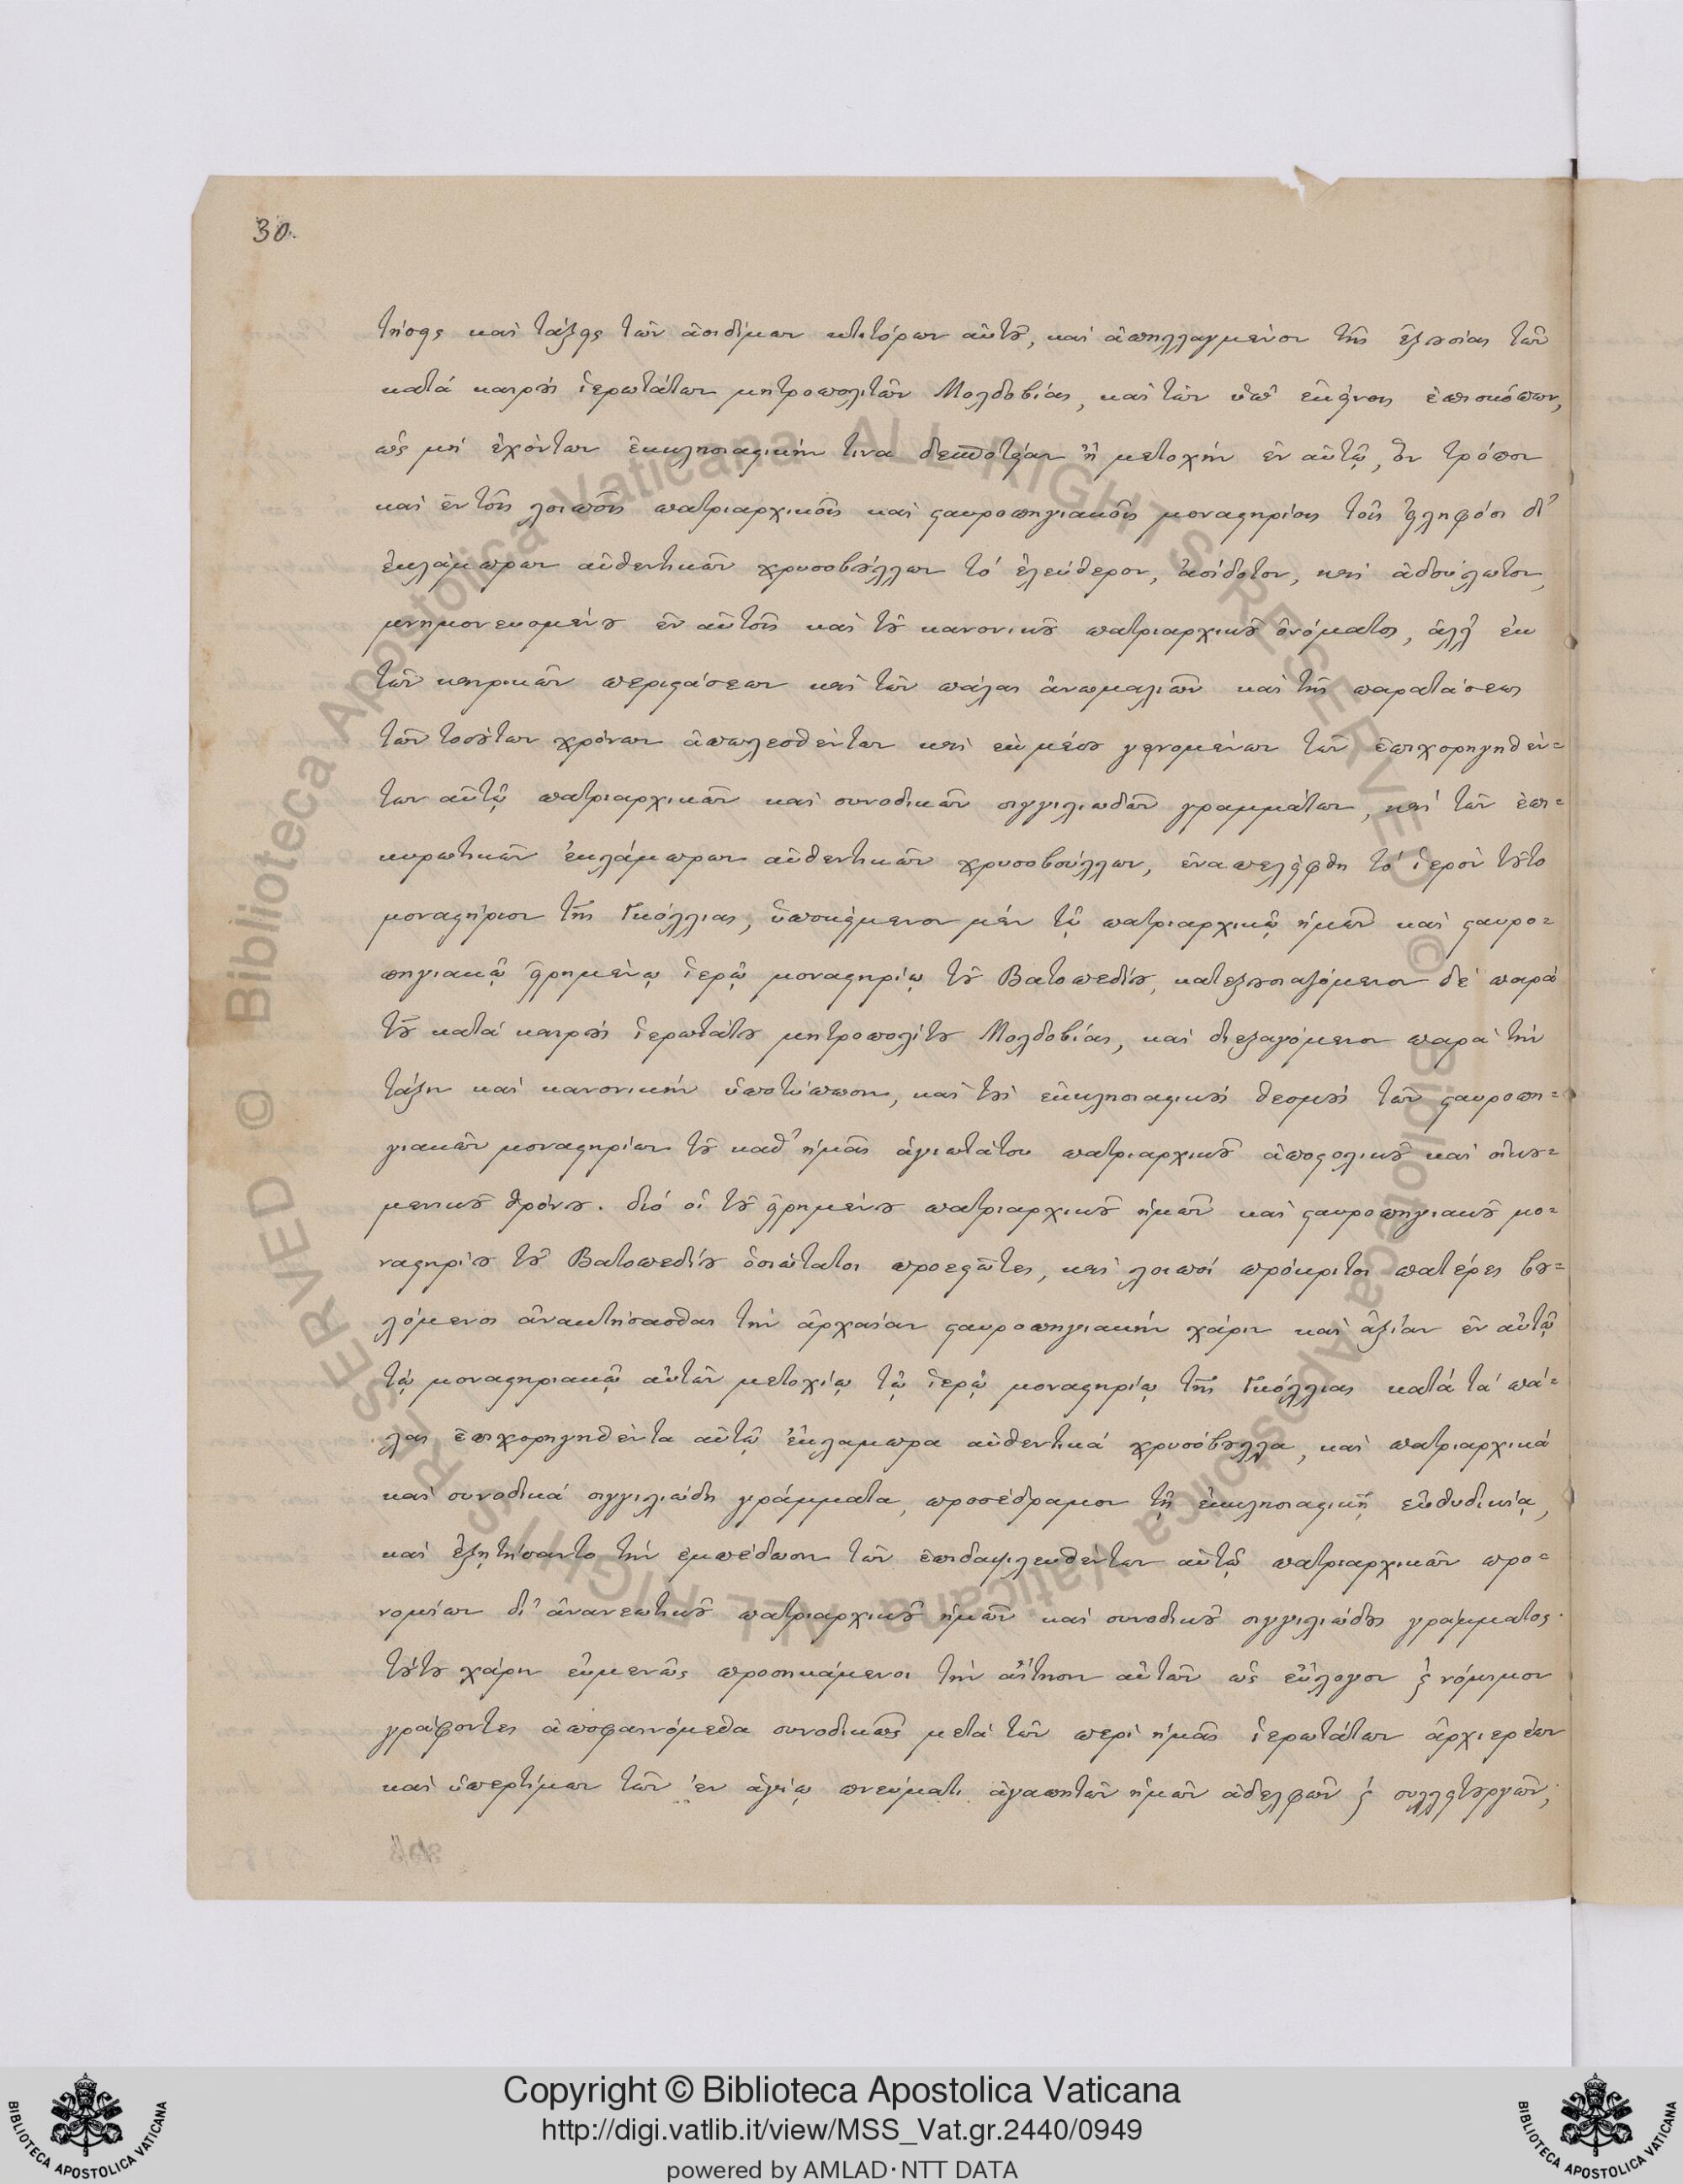 30.
τήσεις καὶ τάξεις τῶν ἀοιδίμων κτιτόρων αὐτοῦ, καὶ ἀπηλλαγμένον τῆς ἐξουσίας τῶν
κατὰ καιροὺς ἱερωτάτων μητροπολιτῶν Μολδοβίας, καὶ τῶν ὑπ' ἐκείνοις ἐπισκόπων,
ὡς μὴ ἐχόντων ἐκκλησιαστικήν τινα δεσποτείαν ἢ μετοχὴν ἐν αὐτῷ, ὃν τρόπον
καὶ ἐν τοῖς λοιποῖς πατριαρχικοῖς καὶ σταυροπηγιακοῖς μοναστηρίοις τοῖς εἰληφόσι δι'
ἐκλάμπρων αὐθεντικῶν χρυσοβούλλων τὸ ἐλεύθερον, ἀσίδοτον, καὶ ἀδούλωτον,
μνημονευομένου ἐν αὐτοῖς καὶ τοῦ κανονικοῦ πατριαρχικοῦ ὀνόματος, ἀλλ' ἐκ
τῶν καιρικῶν περιστάσεων καὶ τῶν πάλαι ἀνωμαλιῶν καὶ τῆς παρατάσεως
τῶν τοσούτων χρόνων ἀπωλεσθέντων καὶ ἐκ μέσου γενομένων τῶν ἐπιχορηγηθέν=
των αὐτῷ πατριαρχικῶν καὶ συνοδικῶν σιγγιλιωδῶν γραμμάτων, καὶ τῶν ἐπι=
κυρωτικῶν ἐκλάμπρων αὐθεντικῶν χρυσοβούλλων, ἐναπελείφθη τὸ ἱερὸν τοῦτο
μοναστήριον τῆς Γκόλλιας, ὑποκείμενον μὲν τῷ πατριαρχικῷ ἡμῶν καὶ σταυρο=
πηγιακῷ εἰρημένῳ ἱερῷ μοναστηρίῳ τοῦ Βατοπεδίου, κατεξουσιαζόμενον δὲ παρὰ
τοῦ κατὰ καιροὺς ἱερωτάτου μητροπολίτου Μολδοβίας, καὶ διεξαγόμενον παρὰ τὴν
τάξιν καὶ κανονικὴν ὑποτύπωσιν, καὶ τοὺς ἐκκλησιαστικοὺς θεσμοὺς τῶν σταυροπη=
γιακῶν μοναστηρίων τοῦ καθ' ἡμᾶς ἁγιωτάτου πατριαρχικοῦ ἀποστολικοῦ καὶ οἰκου=
μενικοῦ θρόνου. διὸ οἱ τοῦ εἰρημένου πατριαρχικοῦ ἡμῶν καὶ σταυροπηγιακοῦ μο=
ναστηρίου τοῦ Βατοπεδίου ὁσιώτατοι προεστῶτες, καὶ λοιποὶ πρόκριτοι πατέρες βου=
λόμενοι ἀνακτήσασθαι τὴν ἀρχαίαν σταυροπηγιακὴν χάριν καὶ ἀξίαν ἐν αὐτῷ
τῷ μοναστηριακῷ αὐτῶν μετοχίῳ τῷ ἱερῷ μοναστηρίῳ τῆς Γκόλλιας κατὰ τὰ πά=
λαι ἐπιχορηγηθέντα αὐτῷ ἔκλαμπρα αὐθεντικὰ χρυσόβουλλα, καὶ πατριαρχικὰ
καὶ συνοδικὰ σιγγιλιώδη γράμματα, προσέδραμον τῇ ἐκκλησιαστικῇ εὐθυδικίᾳ,
καὶ ἐξῃτήσαντο τὴν ἐμπέδωσιν τῶν ἐπιδαψιλευθέντων αὐτῷ πατριαρχικῶν προ=
νομίων δι' ἀνανεωτικοῦ πατριαρχικοῦ ἡμῶν καὶ συνοδικοῦ σιγγιλιώδους γράμματος.
τούτου χάριν εὐμενῶς προσηκάμενοι τὴν αἴτησιν αὐτῶν ὡς εὔλογον ϗ νόμιμον
γράφοντες ἀποφαινόμεθα συνοδικῶς μετὰ τῶν περὶ ἡμᾶς ἱερωτάτων ἀρχιερέων
καὶ ὑπερτίμων τῶν ἐν ἁγίῳ πνεύματι ἀγαπητῶν ἡμῶν ἀδελφῶν ϗ συλλειτουργῶν,
© Biblioteca Apostolica Vaticana ALL RIGHTS RESERVED
Copyright © Biblioteca Apostolica Vaticana
http://digi.vatlib.it/view/MSS_Vat.gr.2440/0949
powered by AMLAD·NTT DATA
BIBLIOTECA APOSTOLICA VATICANA
BIBLIOTECA APOSTOLICA VATICANA